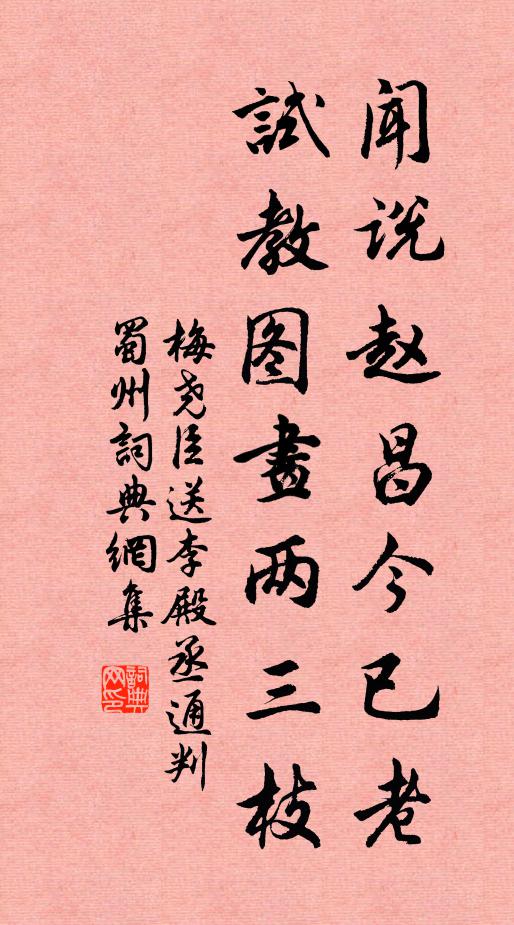 闻说赵昌今已老
試教图畫两三枝
梅尧臣送李殿丞通判
蜀州詞典網集
詞典
网印